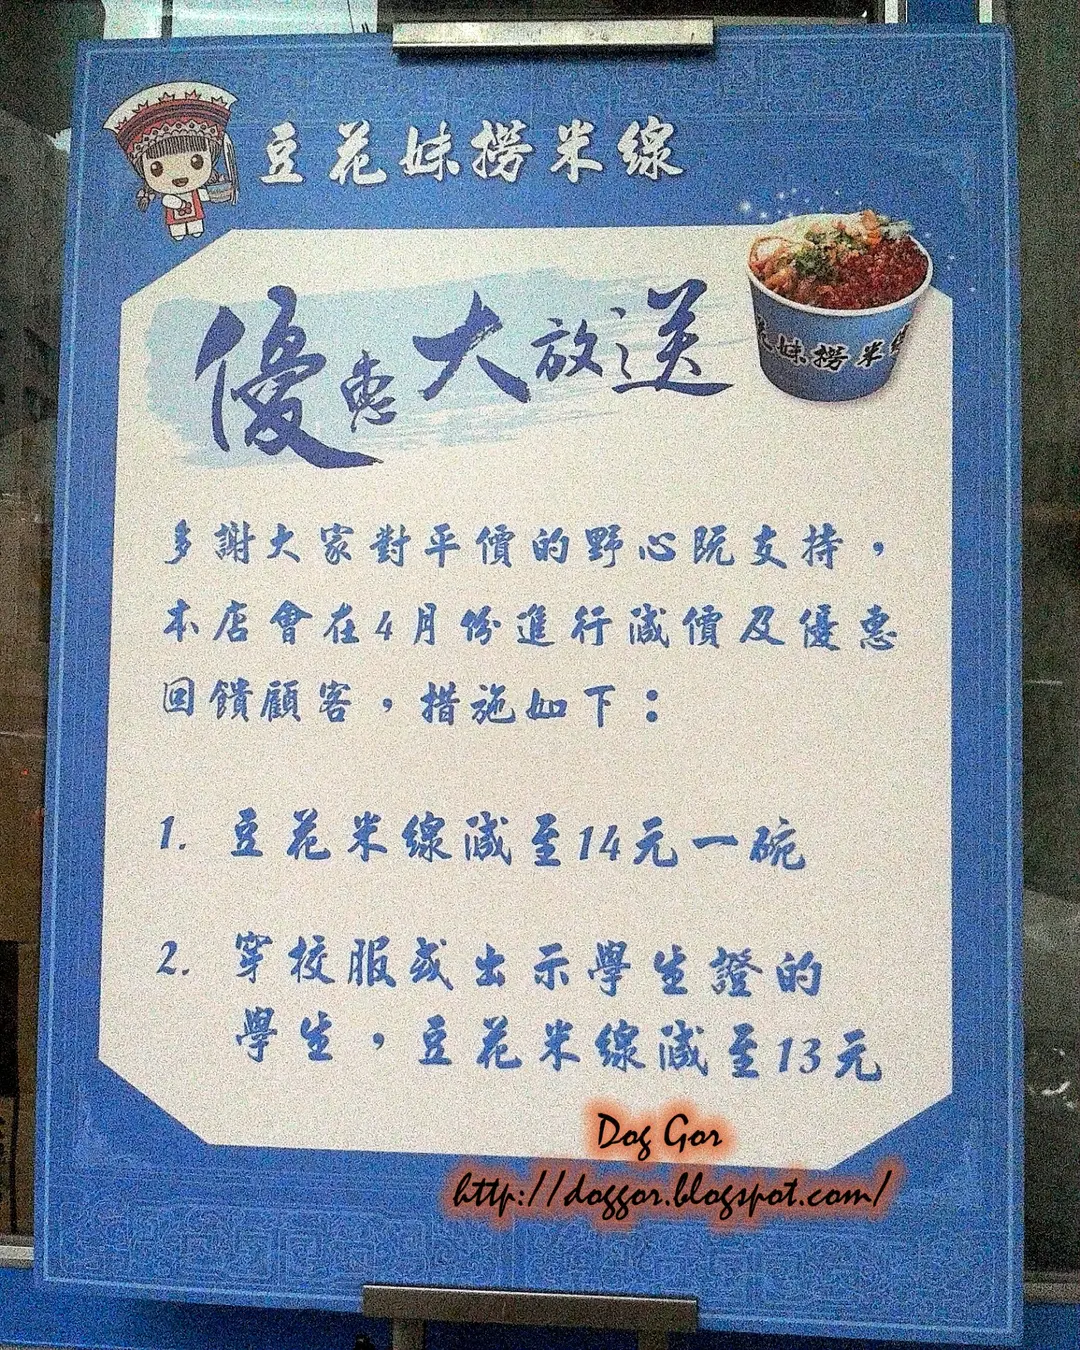 豆花妹撈米線
優惠大放送
妹撈米線
多謝大家對平價的野心阮支持，
本店會在4月份進行減價及優惠
回饋顧客，措施如下：
1. 豆花米線減至14元一碗
2. 穿校服或出示學生證的
學生，豆花米線減至13元
Dog Gor
http://doggor.blogspot.com/